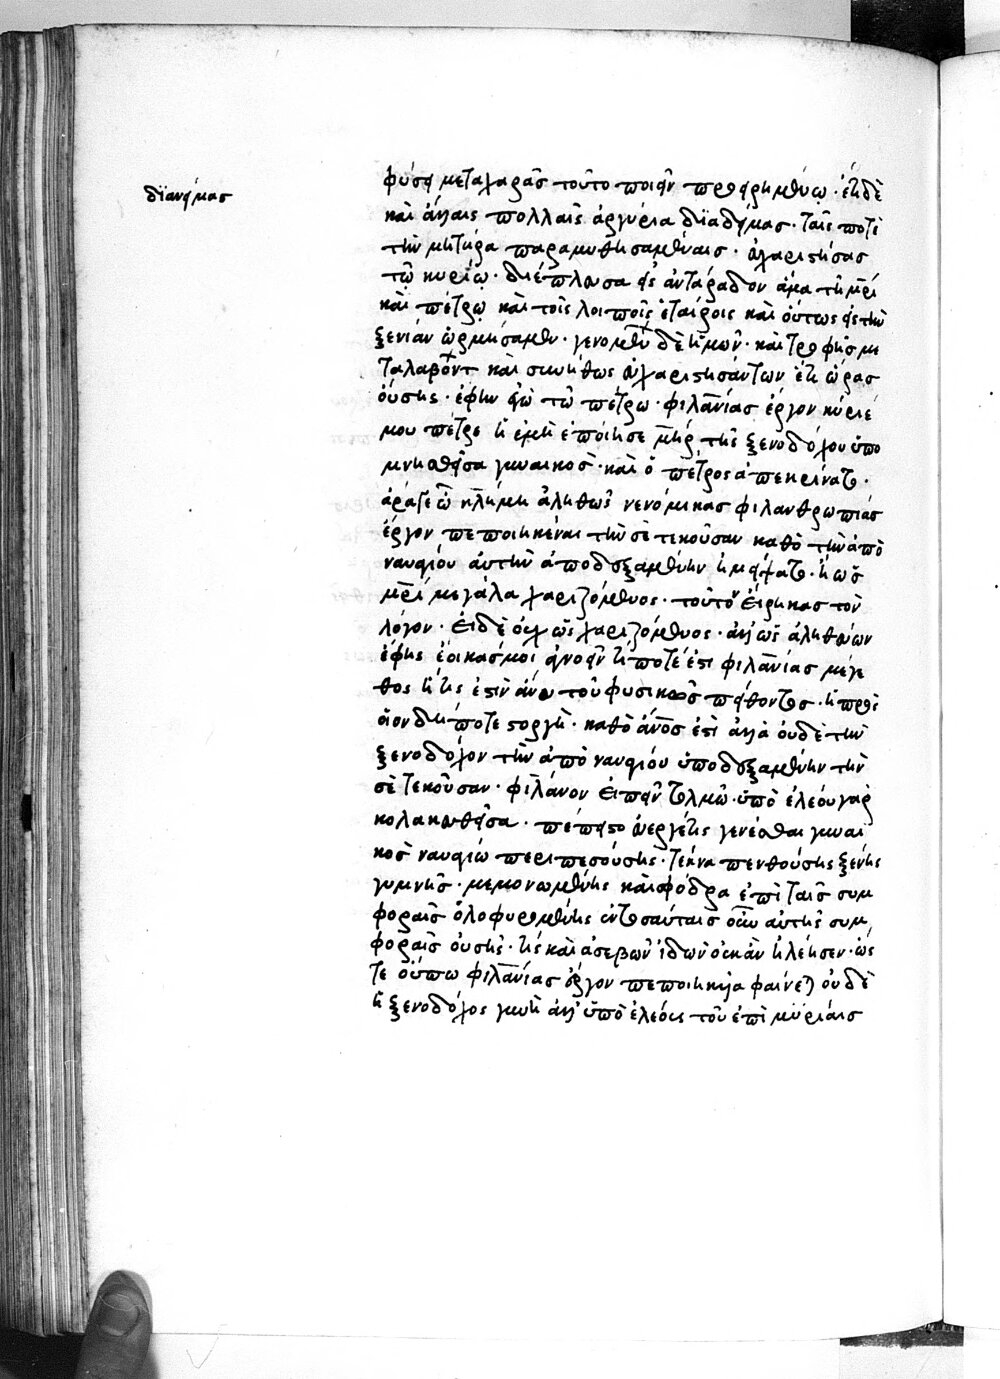 διανείμας
φύσει μετὰ χαρᾶς τοῦτο ποιεῖν προῃρημένῳ· ἔτι δὲ
καὶ ἄλλαις πολλαῖς ἀργύρια διαδείμας· ταῖς ποτὲ
τὴν μητέρα παραμυθησαμέναις· εὐχαριστήσας
τῶ κυρίῳ· διέπλευσα εἰς ἀντάραδον ἅμα τῆ μρὶ
καὶ πέτρῳ καὶ τοῖς λοιποῖς ἑταίροις καὶ οὕτως εἰς τὴν
ξενίαν ὡρμήσαμεν· γενομένων δὲ ἡμῶν· καὶ τροφῆς με
ταλαβόντ καὶ συνήθως εὐχαριστησάντων ἔτι ὥρας
οὔσης· ἔφην ἐγὼ τῶ πέτρω· φιλανίας ἔργον κύριέ
μου πέτρε ἡ ἐμὴ ἐποίησε μηρ τῆς ξενοδόχου ὑπο
μνησθεῖσα γυναικός· καὶ ὁ πέτρος ἀπεκρίνατο·
ἆρά γε ὦ κλήμη ἀληθῶς νενόμικας φιλανθρωπίας
ἔργον πεποιηκέναι τὴν σὲ τεκοῦσαν καθὸ τὴν ἀπὸ
ναυαγίου αὐτὴν ἀποδεξαμένην ἠμείψατο· ἢ ὡς
μρὶ μεγάλα χαριζόμενος· τοῦτον εἴρηκας τὸν
λόγον· εἰ δὲ οὐχ ὡς χαριζόμενος· ἀλλ' ὡς ἀληθεύων
ἔφης ἔοικάς μοι ἀγνοεῖν τί ποτέ ἐστι φιλανίας μέγε
θος ἥτις ἐστὶν ἄνευ τοῦ φυσικῶς πείθοντος· ἡ πρὸς
οἷον δήποτε στοργή· καθὸ ἄνος ἐστὶ ἀλλὰ οὐδὲ τὴν
ξενοδόχον τὴν ἀπὸ ναυαγίου ὑποδεξαμένην τὴν
σὲ τεκοῦσαν· φιλάνον εἰπεῖν τολμῶ· ὑπὸ ἐλέου γὰρ
κολακευθεῖσα· πέπειστο εὐεργέτις γενέσθαι γυναι
κὸς ναυαγίω περιπεσούσης· τέκνα πενθούσης ξένης
γυμνῆς· μεμονωμένης καὶ σφόδρα ἐπὶ ταῖς συμ
φοραῖς ὀλοφυρομένης ἐν τοσαύταις οὖν αὐτῆς συμ
φοραῖς οὔσης· τίς καὶ ἀσεβῶν ἰδὼν οὐκ ἂν ἠλέησεν· ὥς
τε οὔπω φιλανίας ἔργον πεποιηκυῖα φαίνεται οὐδὲ
ἡ ξενοδόχος γυνὴ ἀλλ' ὑπὸ ἐλέους τοῦ ἐπὶ μυρίαις